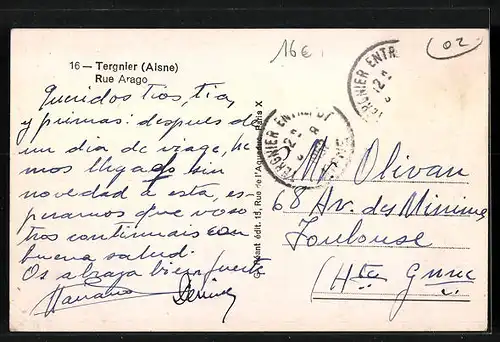 16€
02
16 — Tergnier (Aisne)
Rue Arago
Queridos tios, tia,
y primas: despues de
un dia de viage, he
mos llegado sin
novedad a esta, es-
peramos que voso
tros continuais con
buena salud.
Os abraza bien fuerte
TERGNIER ENTR
12
TERGNIER ENTREPOT
12
AISNE
édit. 15, Rue de l'Aqueduc Paris X
Mr Olivan
68 Av. des Minimes
Toulouse
(Hte Gnne)